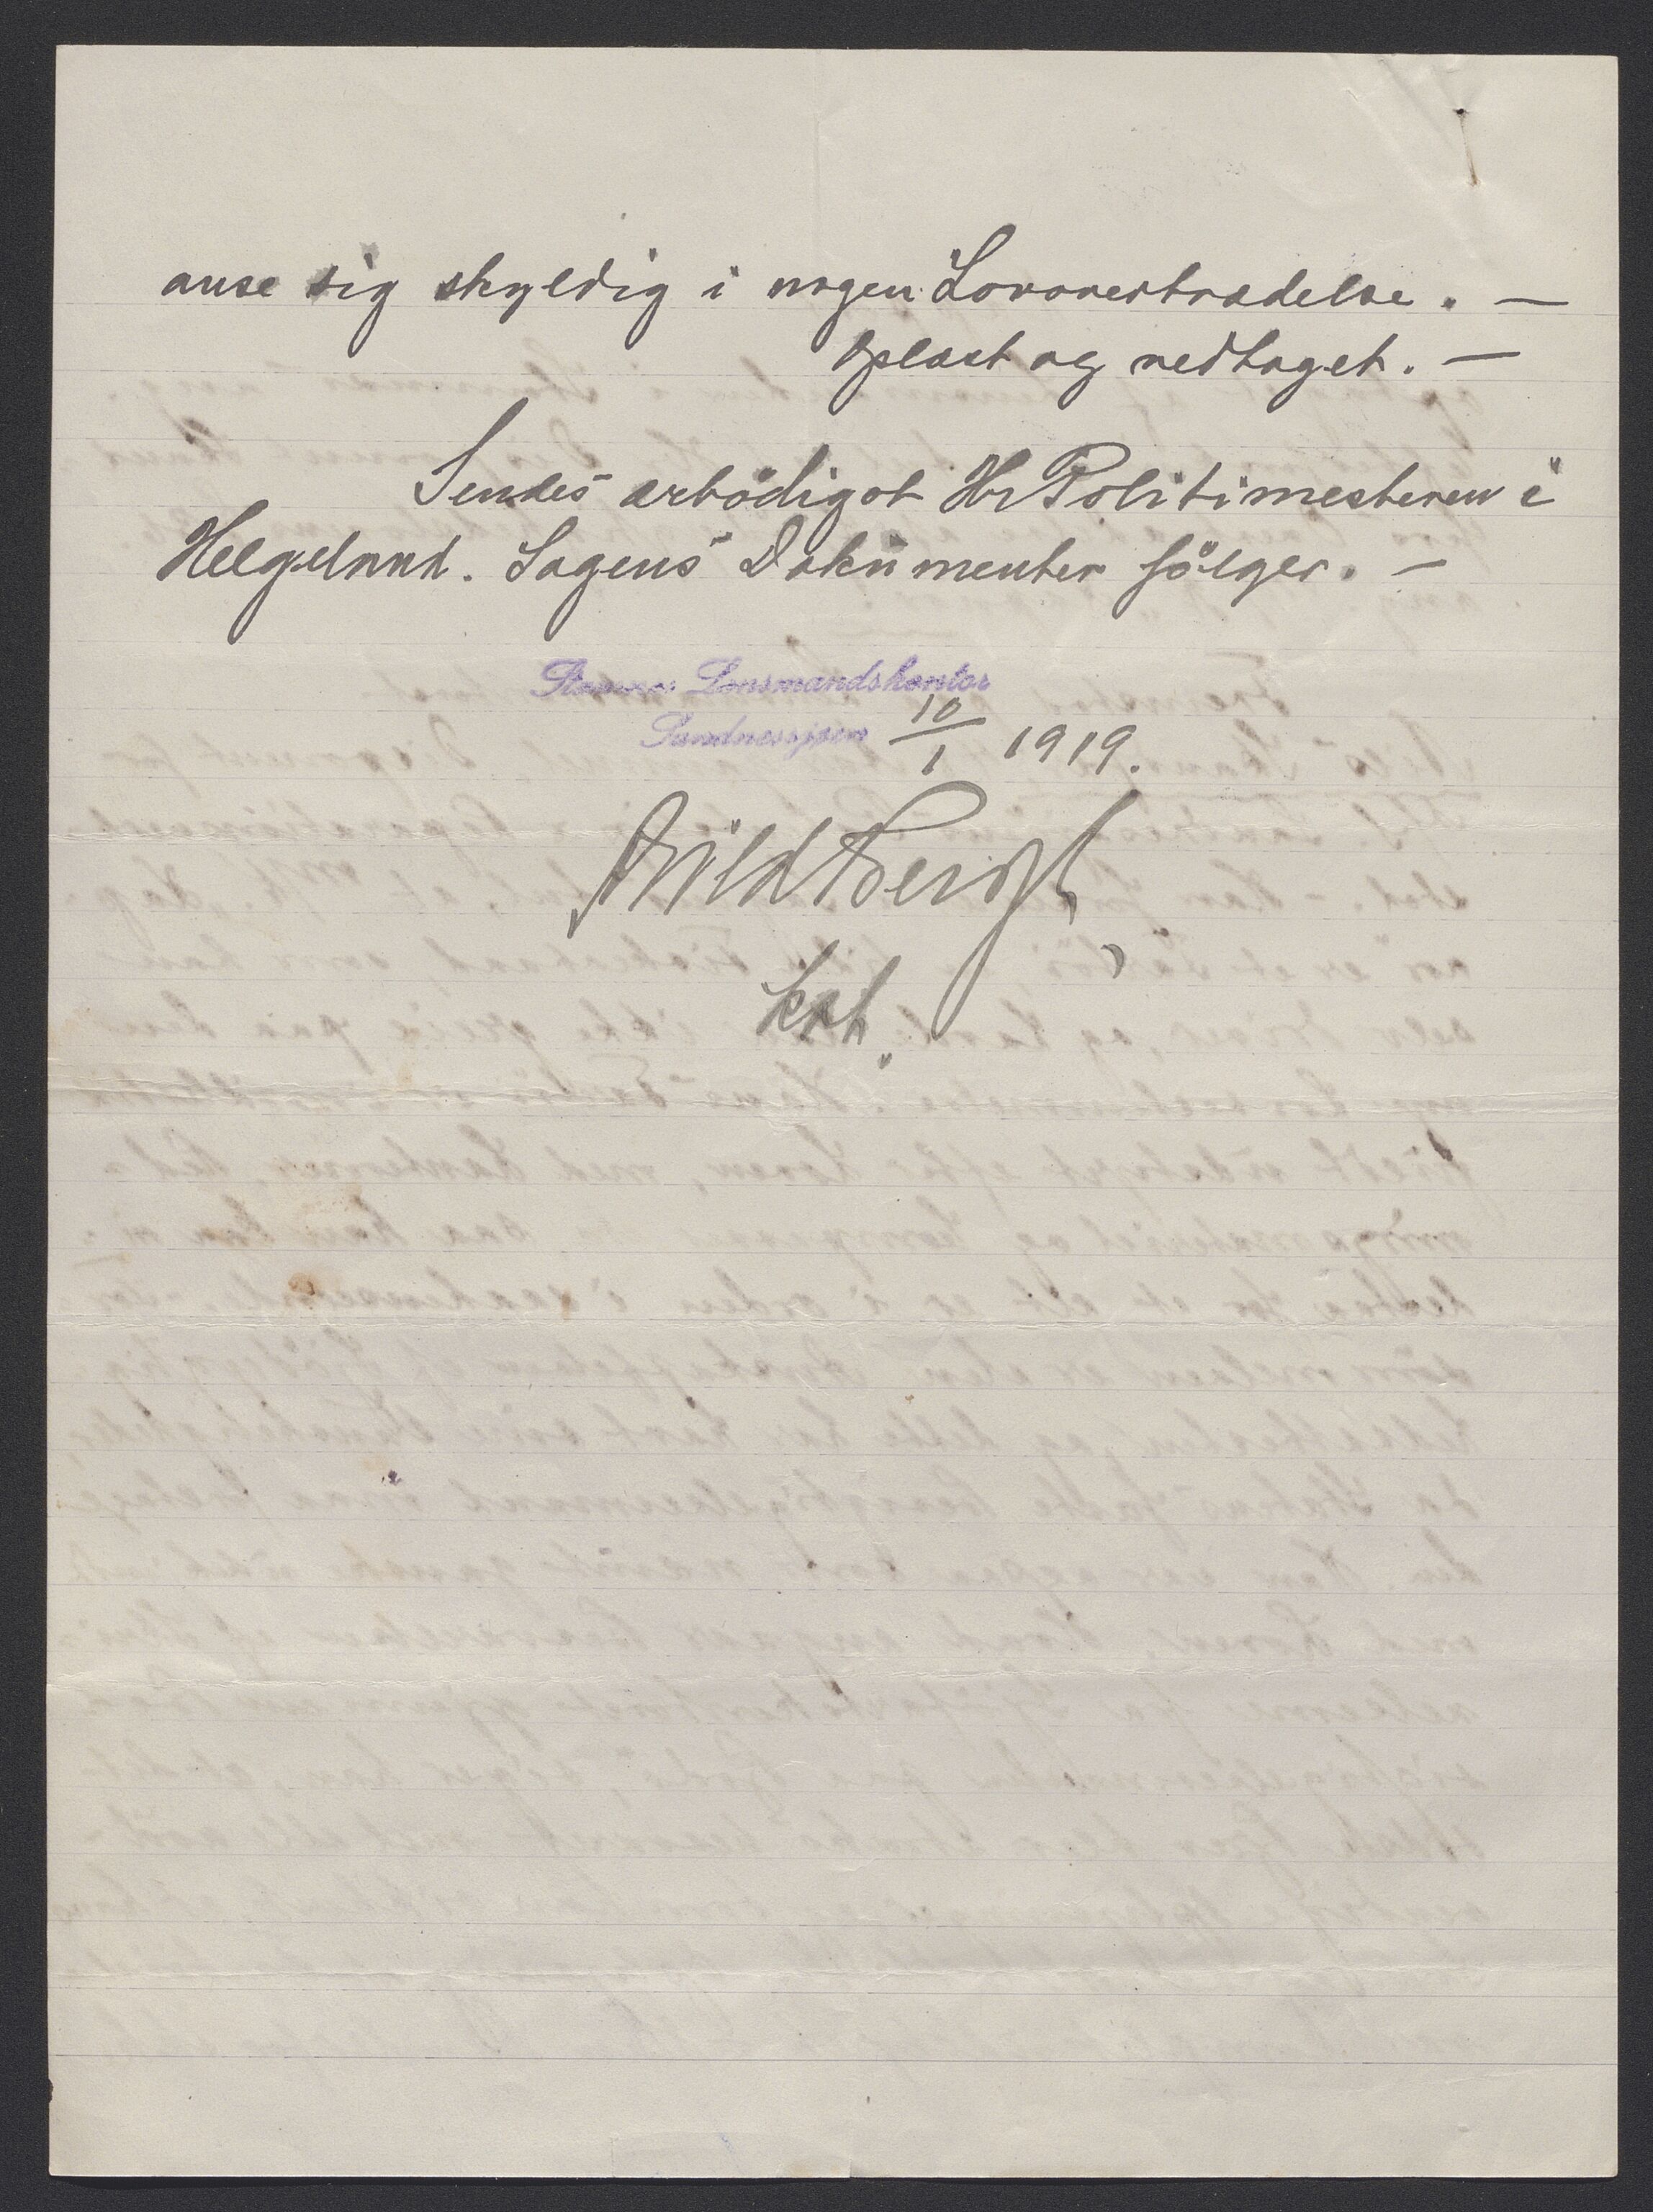 anse sig skyldig i nogen Lovovertrædelse. —
Oplæst og vedtaget. —
Sendes ærbödigst Hr Politimesteren i
Helgeland. Sagens Dokumenter fölger. —
Stamnes Lensmandskontor
Sandnessjøen 10/1 1919.
kst.